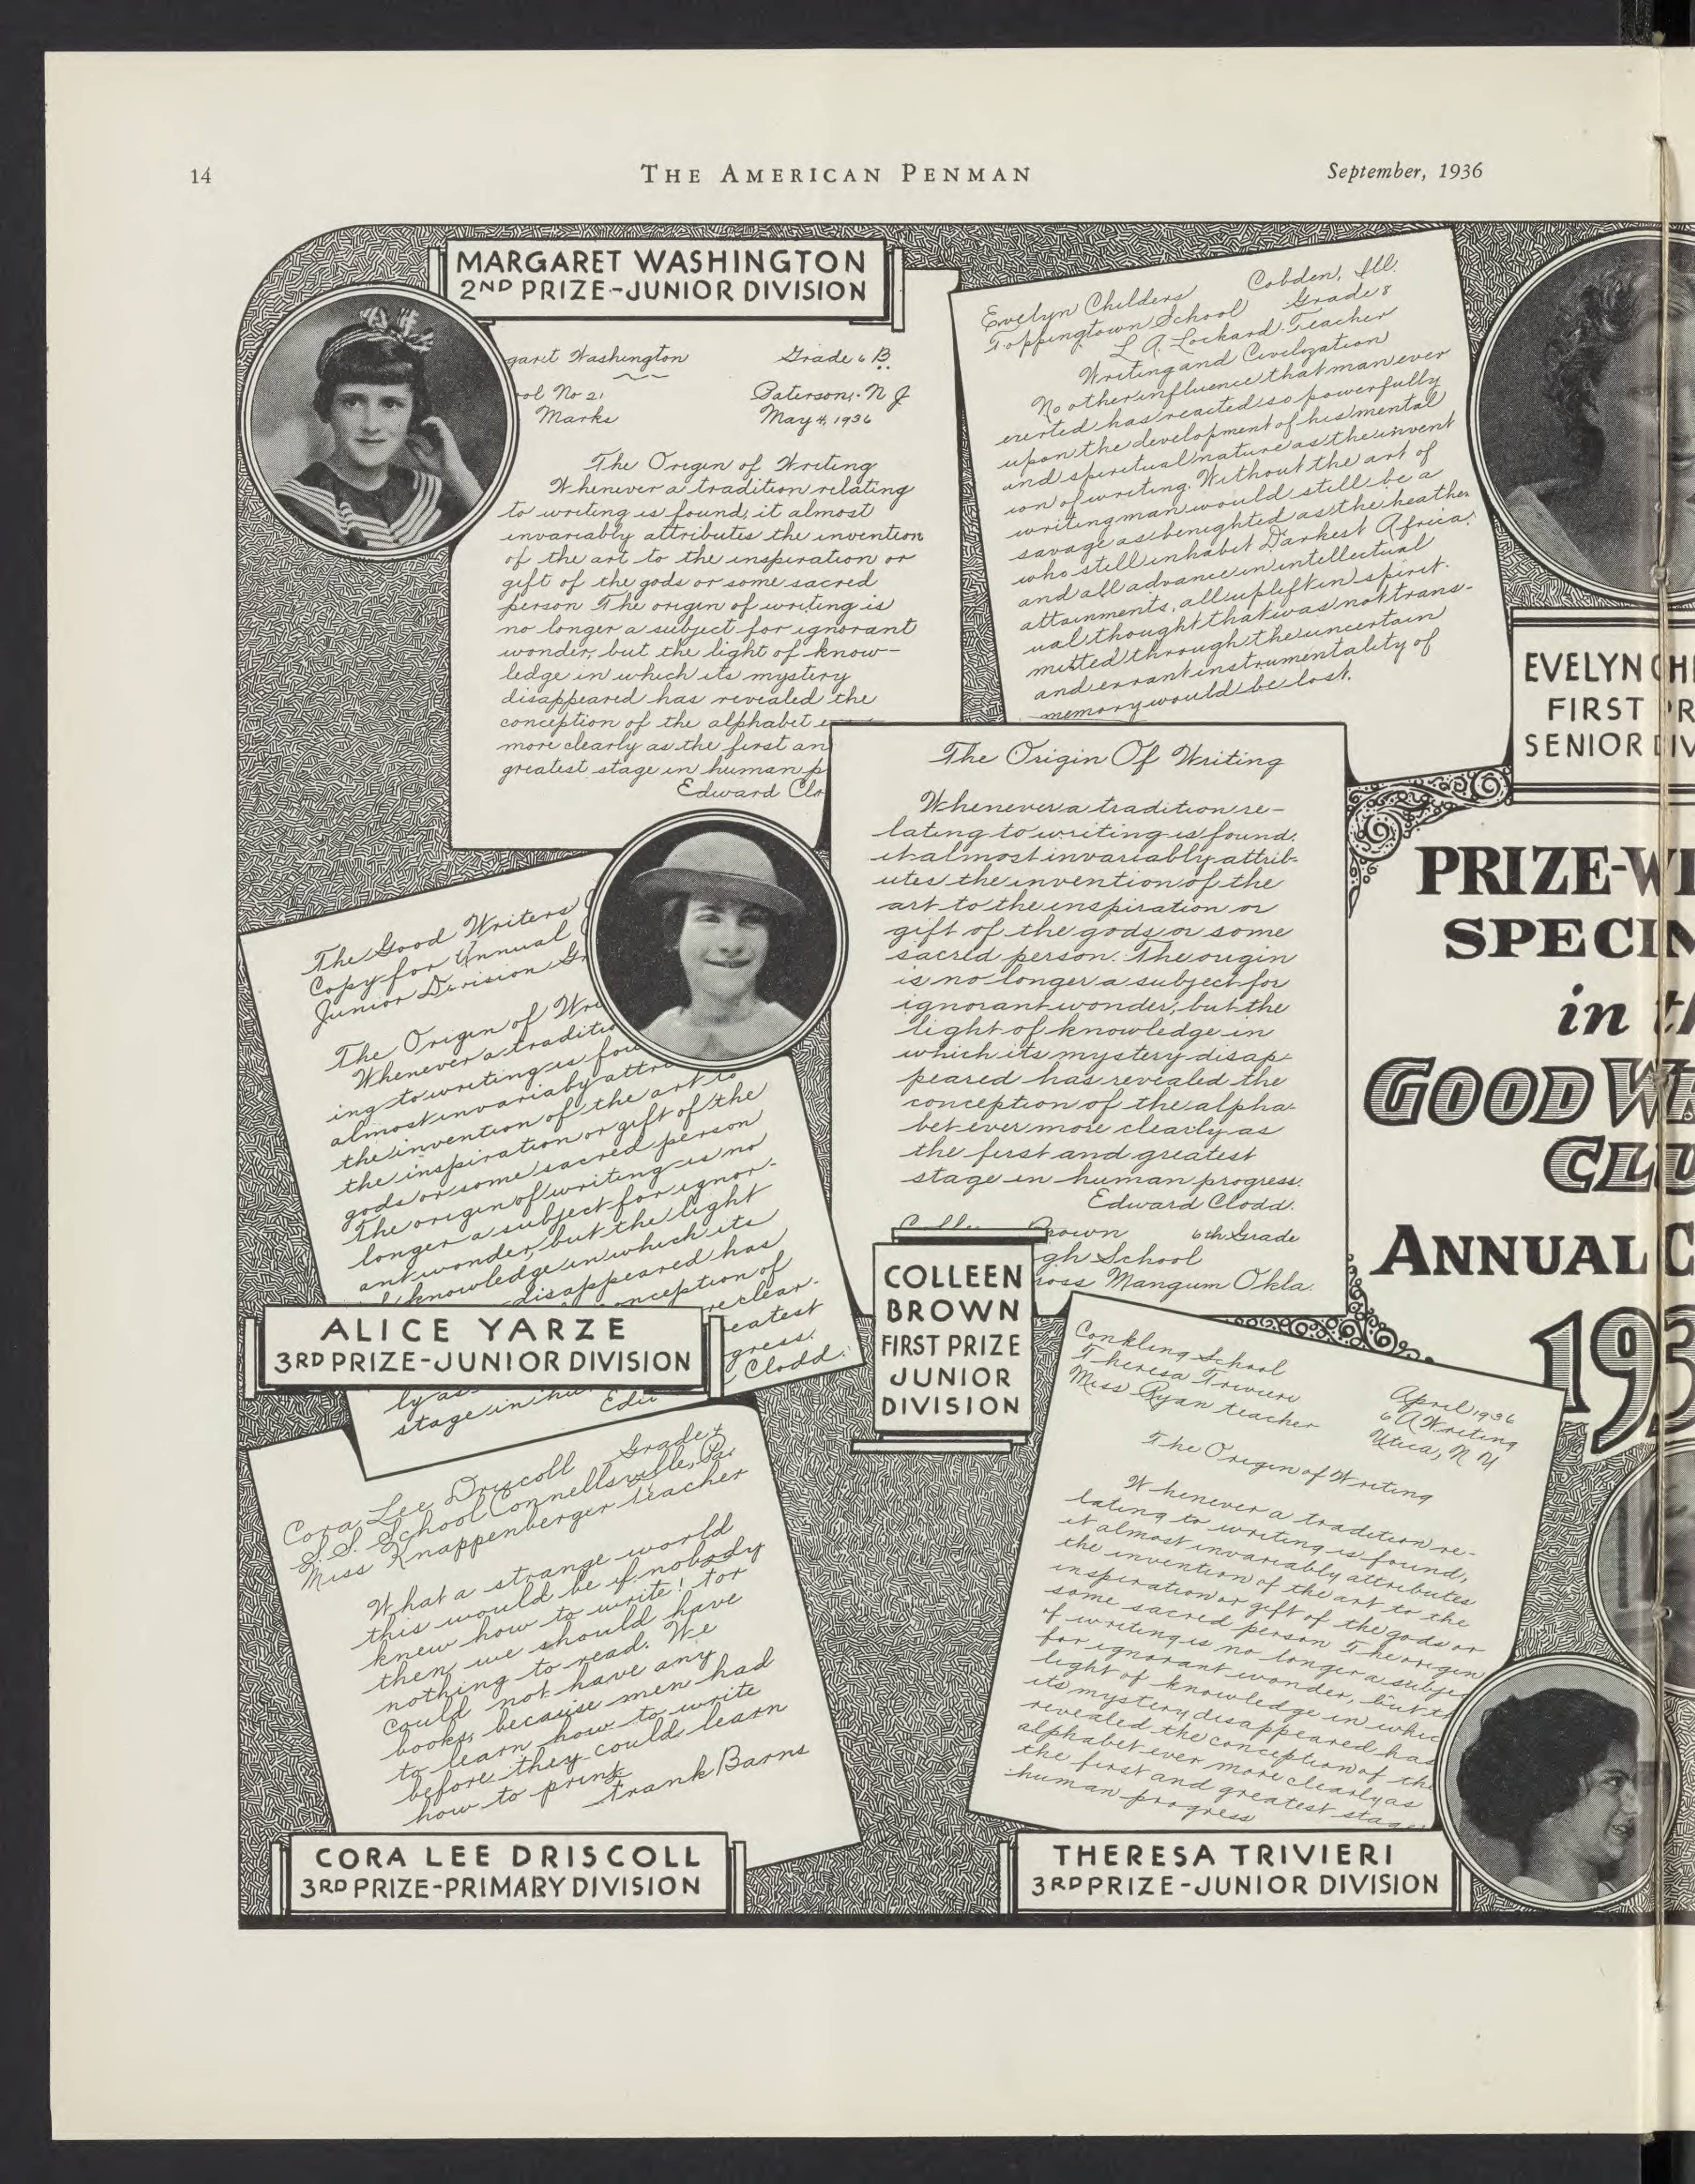 14
THE AMERICAN PENMAN
September, 1936
MARGARET WASHINGTON
2ND PRIZE-JUNIOR DIVISION
garet Washington Grade 6 B.
ol No 21 Paterson, N J
Marks May 4, 1936
The Origin of Writing
Whenever a tradition relating
to writing is found, it almost
invariably attributes the invention
of the art to the inspiration or
gift of the gods or some sacred
person The origin of writing is
no longer a subject for ignorant
wonder, but the light of know-
ledge in which its mystery
disappeared has revealed the
conception of the alphabet e
more clearly as the first an
greatest stage in human p
Edward Clo
Cobden, Ill.
Evelyn Childers Grade 8
Toppingtown School
L. A. Lockard. Teacher
Writing and Civilization
No other influence that man ever
exerted has reacted so powerfully
upon the development of his mental
and spiritual nature as the invent
ion of writing. Without the art of
writing man would still be a
savage as benighted as the heathen
who still inhabit Darkest Africa.
and all advance in intellectual
attainments, all uplift in spirit-
ual thought that was not trans-
mitted through the uncertain
and errant instrumentality of
memory would be lost.
EVELYN CHI
FIRST PR
SENIOR DIV
The Origin Of Writing
Whenever a tradition re-
lating to writing is found,
it almost invariably attrib-
utes the invention of the
art to the inspiration or
gift of the gods or some
sacred person. The origin
is no longer a subject for
ignorant wonder, but the
light of knowledge in
which its mystery disap-
peared has revealed the
conception of the alpha-
bet ever more clearly as
the first and greatest
stage in human progress.
Edward Clodd.
Brown 6th Grade
gh School
ross Mangum Okla.
COLLEEN
BROWN
FIRST PRIZE
JUNIOR
DIVISION
PRIZE-WI
SPECIM
in th
GOOD WR
CLU
ANNUAL C
193
The Good Writers
Copy for Annual
Junior Division Gr
The Origin of Wri
Whenever a traditio
ing to writing is fou
almost invariaby attri
the invention of the art to
the inspiration or gift of the
gods or some sacred person
The origin of writing is no
longer a subject for ignor-
ant wonder, but the light
knowledge in which its
disappeared has
onception of
re clear-
eatest
gress.
Clodd.
ALICE YARZE
3RD PRIZE-JUNIOR DIVISION
ly as
stage in hu
Edw
Cora Lee Driscoll Grade 4
S. S. School Connellsville, Pa.
Miss Knappenberger teacher
What a strange world
this would be if nobody
knew how to write! for
then, we should have
nothing to read. We
could not have any
books, because men had
to learn how to write
before they could learn
how to print
Frank Barns
CORA LEE DRISCOLL
3RD PRIZE-PRIMARY DIVISION
Conkling School April 1936
Theresa Trivieri 6 A Writing
Miss Ryan teacher Utica, N Y
The Origin of Writing
Whenever a tradition re-
lating to writing is found,
it almost invariably attributes
the invention of the art to the
inspiration or gift of the gods or
some sacred person The origin
of writing is no longer a subjec
for ignorant wonder, but th
light of knowledge in whic
its mystery disappeared has
revealed the conception of the
alphabet ever more clearly as
the first and greatest stage
human progress
THERESA TRIVIERI
3RD PRIZE-JUNIOR DIVISION